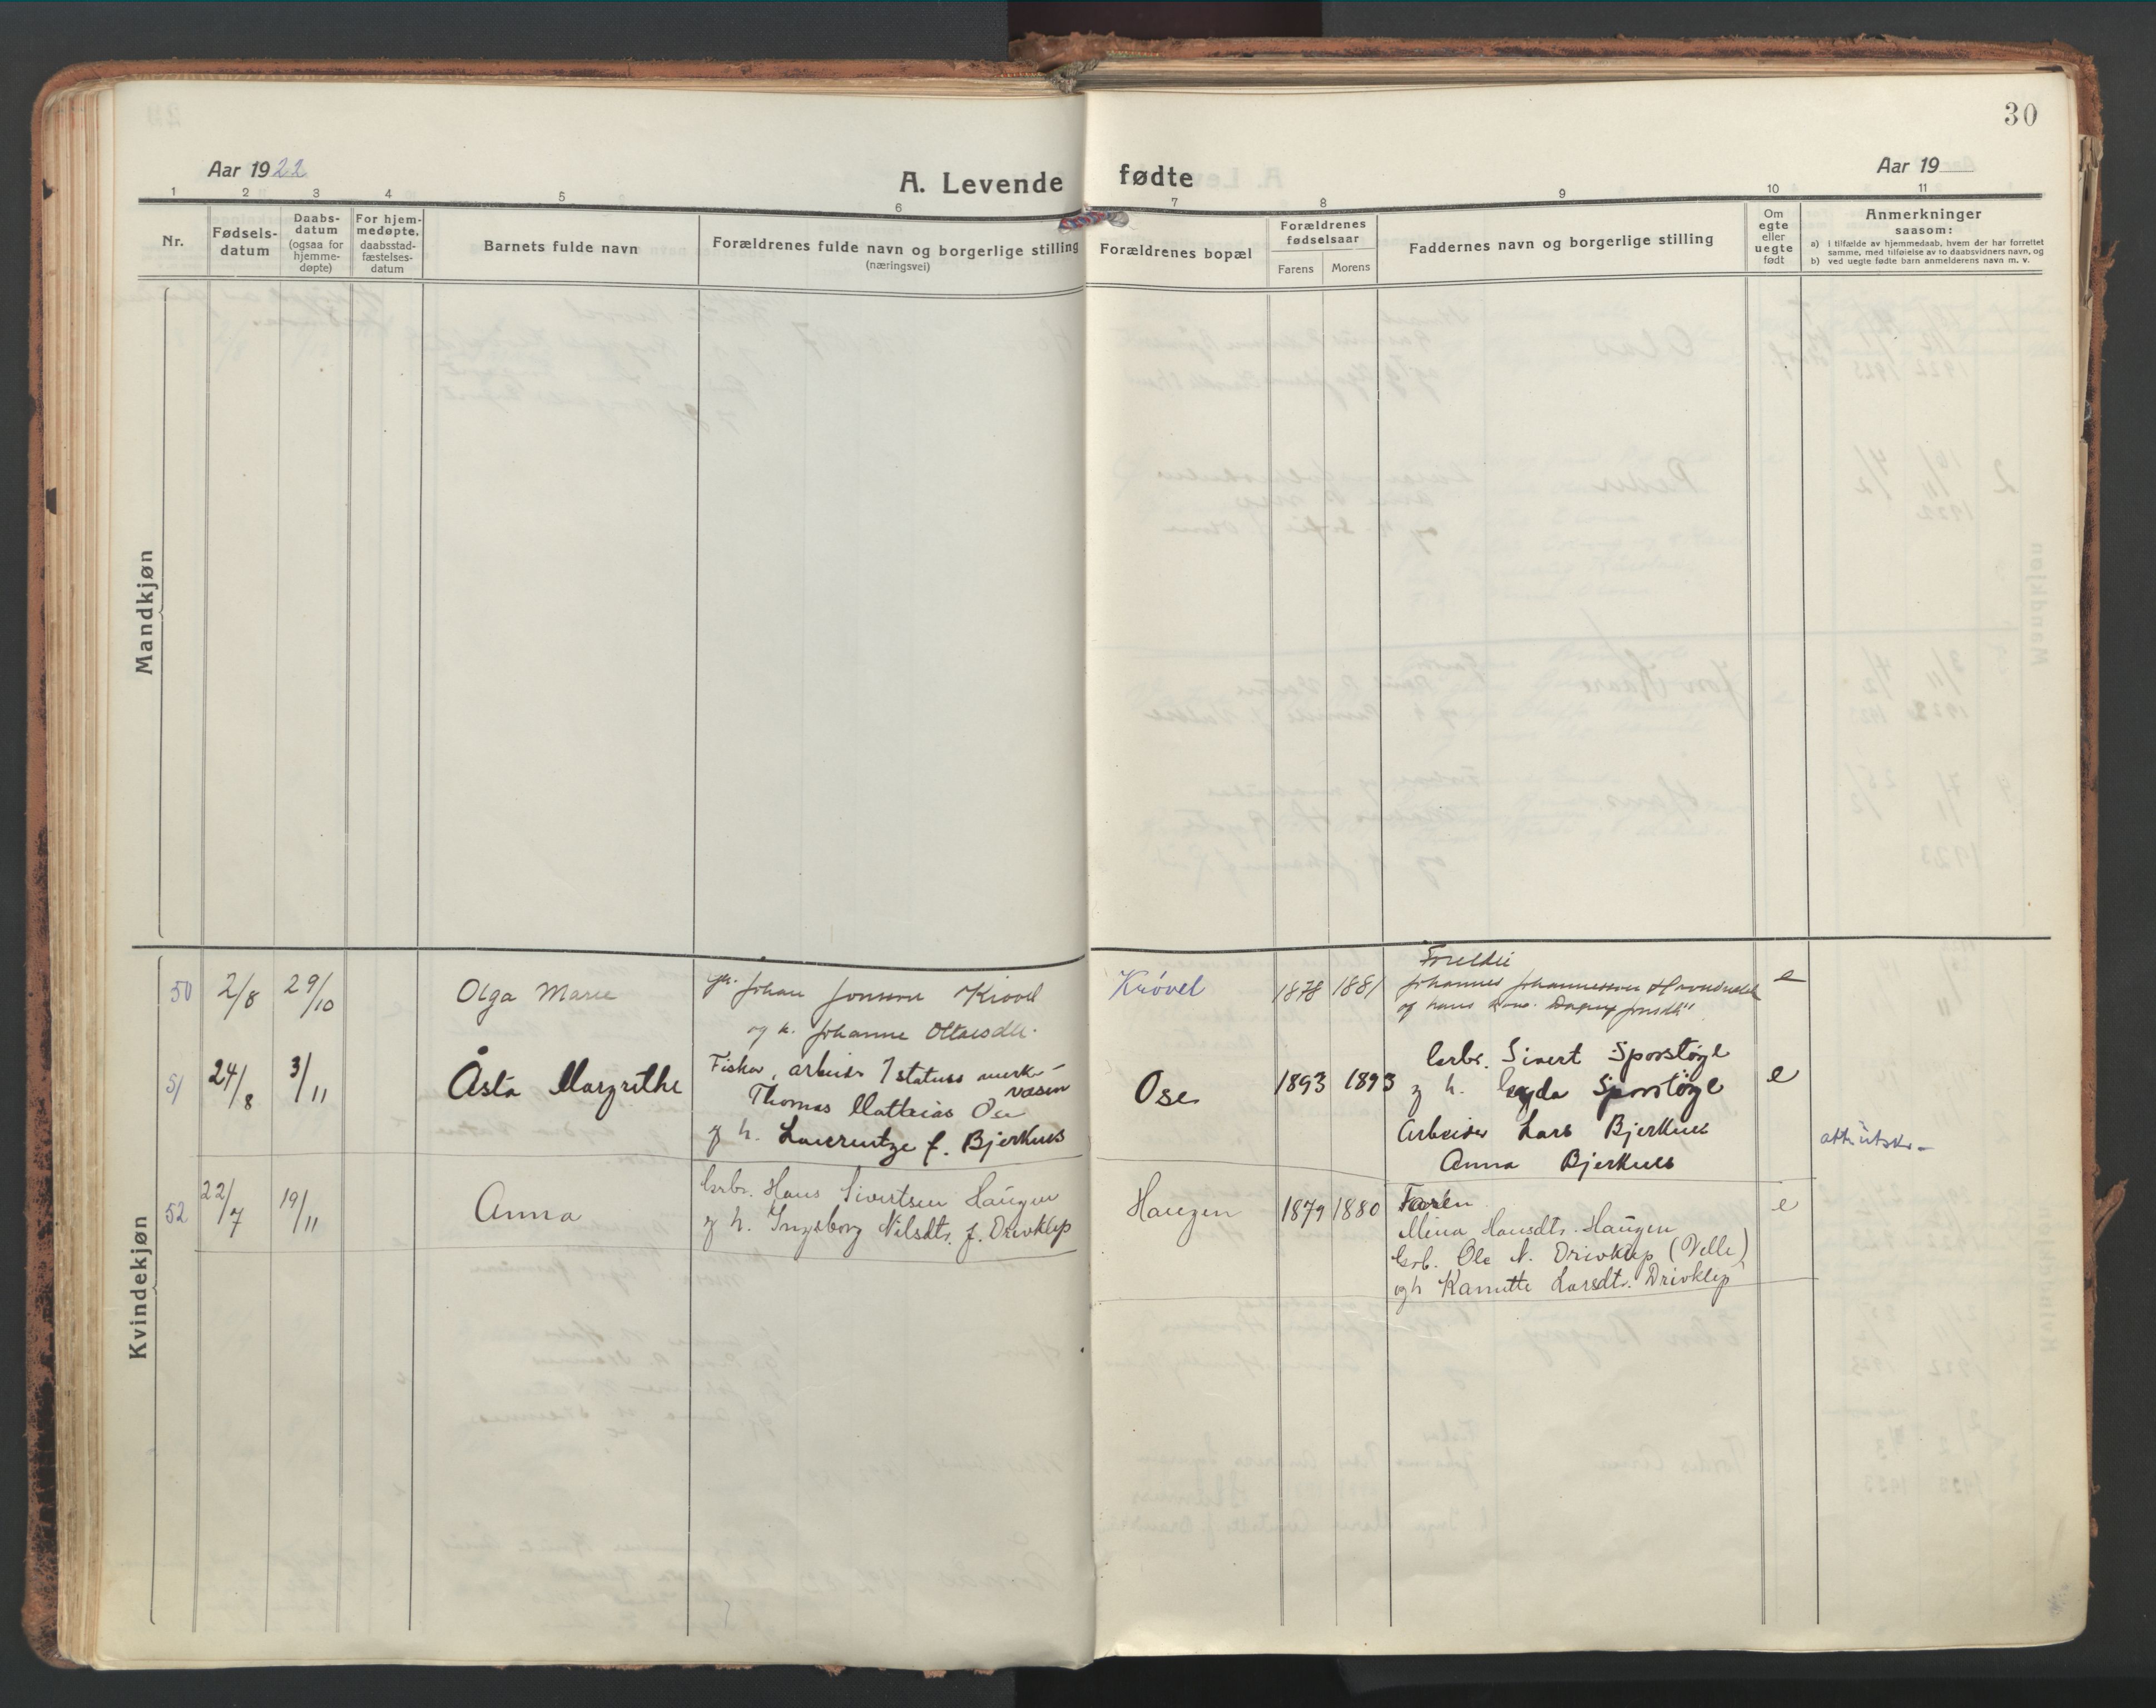 30
Aar 1922
A. Levende fødte
Aar 19
1 2 3 4 5 6 7 8 9 10 11
Nr.
Fødsels-
datum
Daabs-
datum
(ogsaa for
hjemme-
døpte)
For hjem-
medøpte.
daabsstad-
fæstelses-
datum
Barnets fulde navn
Forældrenes fulde navn og borgerlige stilling
(næringsvei)
Forældrenes bopæl
Forældrenes
fødselsaar
Farens Morens
Faddernes navn og borgerlige stilling
Om
egte
eller
uegte
født
Anmerkninger
saasom:
a) i tilfælde av hjemmedaab, hvem der har forrettet
samme, med tilføielse av to daabsvidners navn, og
b) ved uegte fødte barn anmelderens navn m. v.
Mandkjøn
Kvindekjøn
50 2/8 29/10 Olga Marie
Johan Jonsson Krøvel
og h. Johanne
Krøvel 1878 1881
Foreldre
Johannes Johannesson
og hans kone
e
51 24/8 3/11 Åsta Margrethe
Fisker, arbeider I statens merk-
vesen
Thomas Mathias Ose
g h. Laurentze f. Bjerknes
Ose 1893 1893
Grbr. Sivert Sporstøyl
g h. Gyda Sporstøyl
Arbeider Lars Bjerknes
Anna Bjerknes
e
att. utskr.
52 22/7 19/11 Anna
Grbr. Hans Sivertsen Haugen
g h. Ingeborg Nilsdtr. f. Drivklep
Haugen 1879 1880
Faren
Mina Hansdtr. Haugen
Grb. Ole N. Drivklep (Velle)
og h Kamitte Larsdtr. Drivklep
e